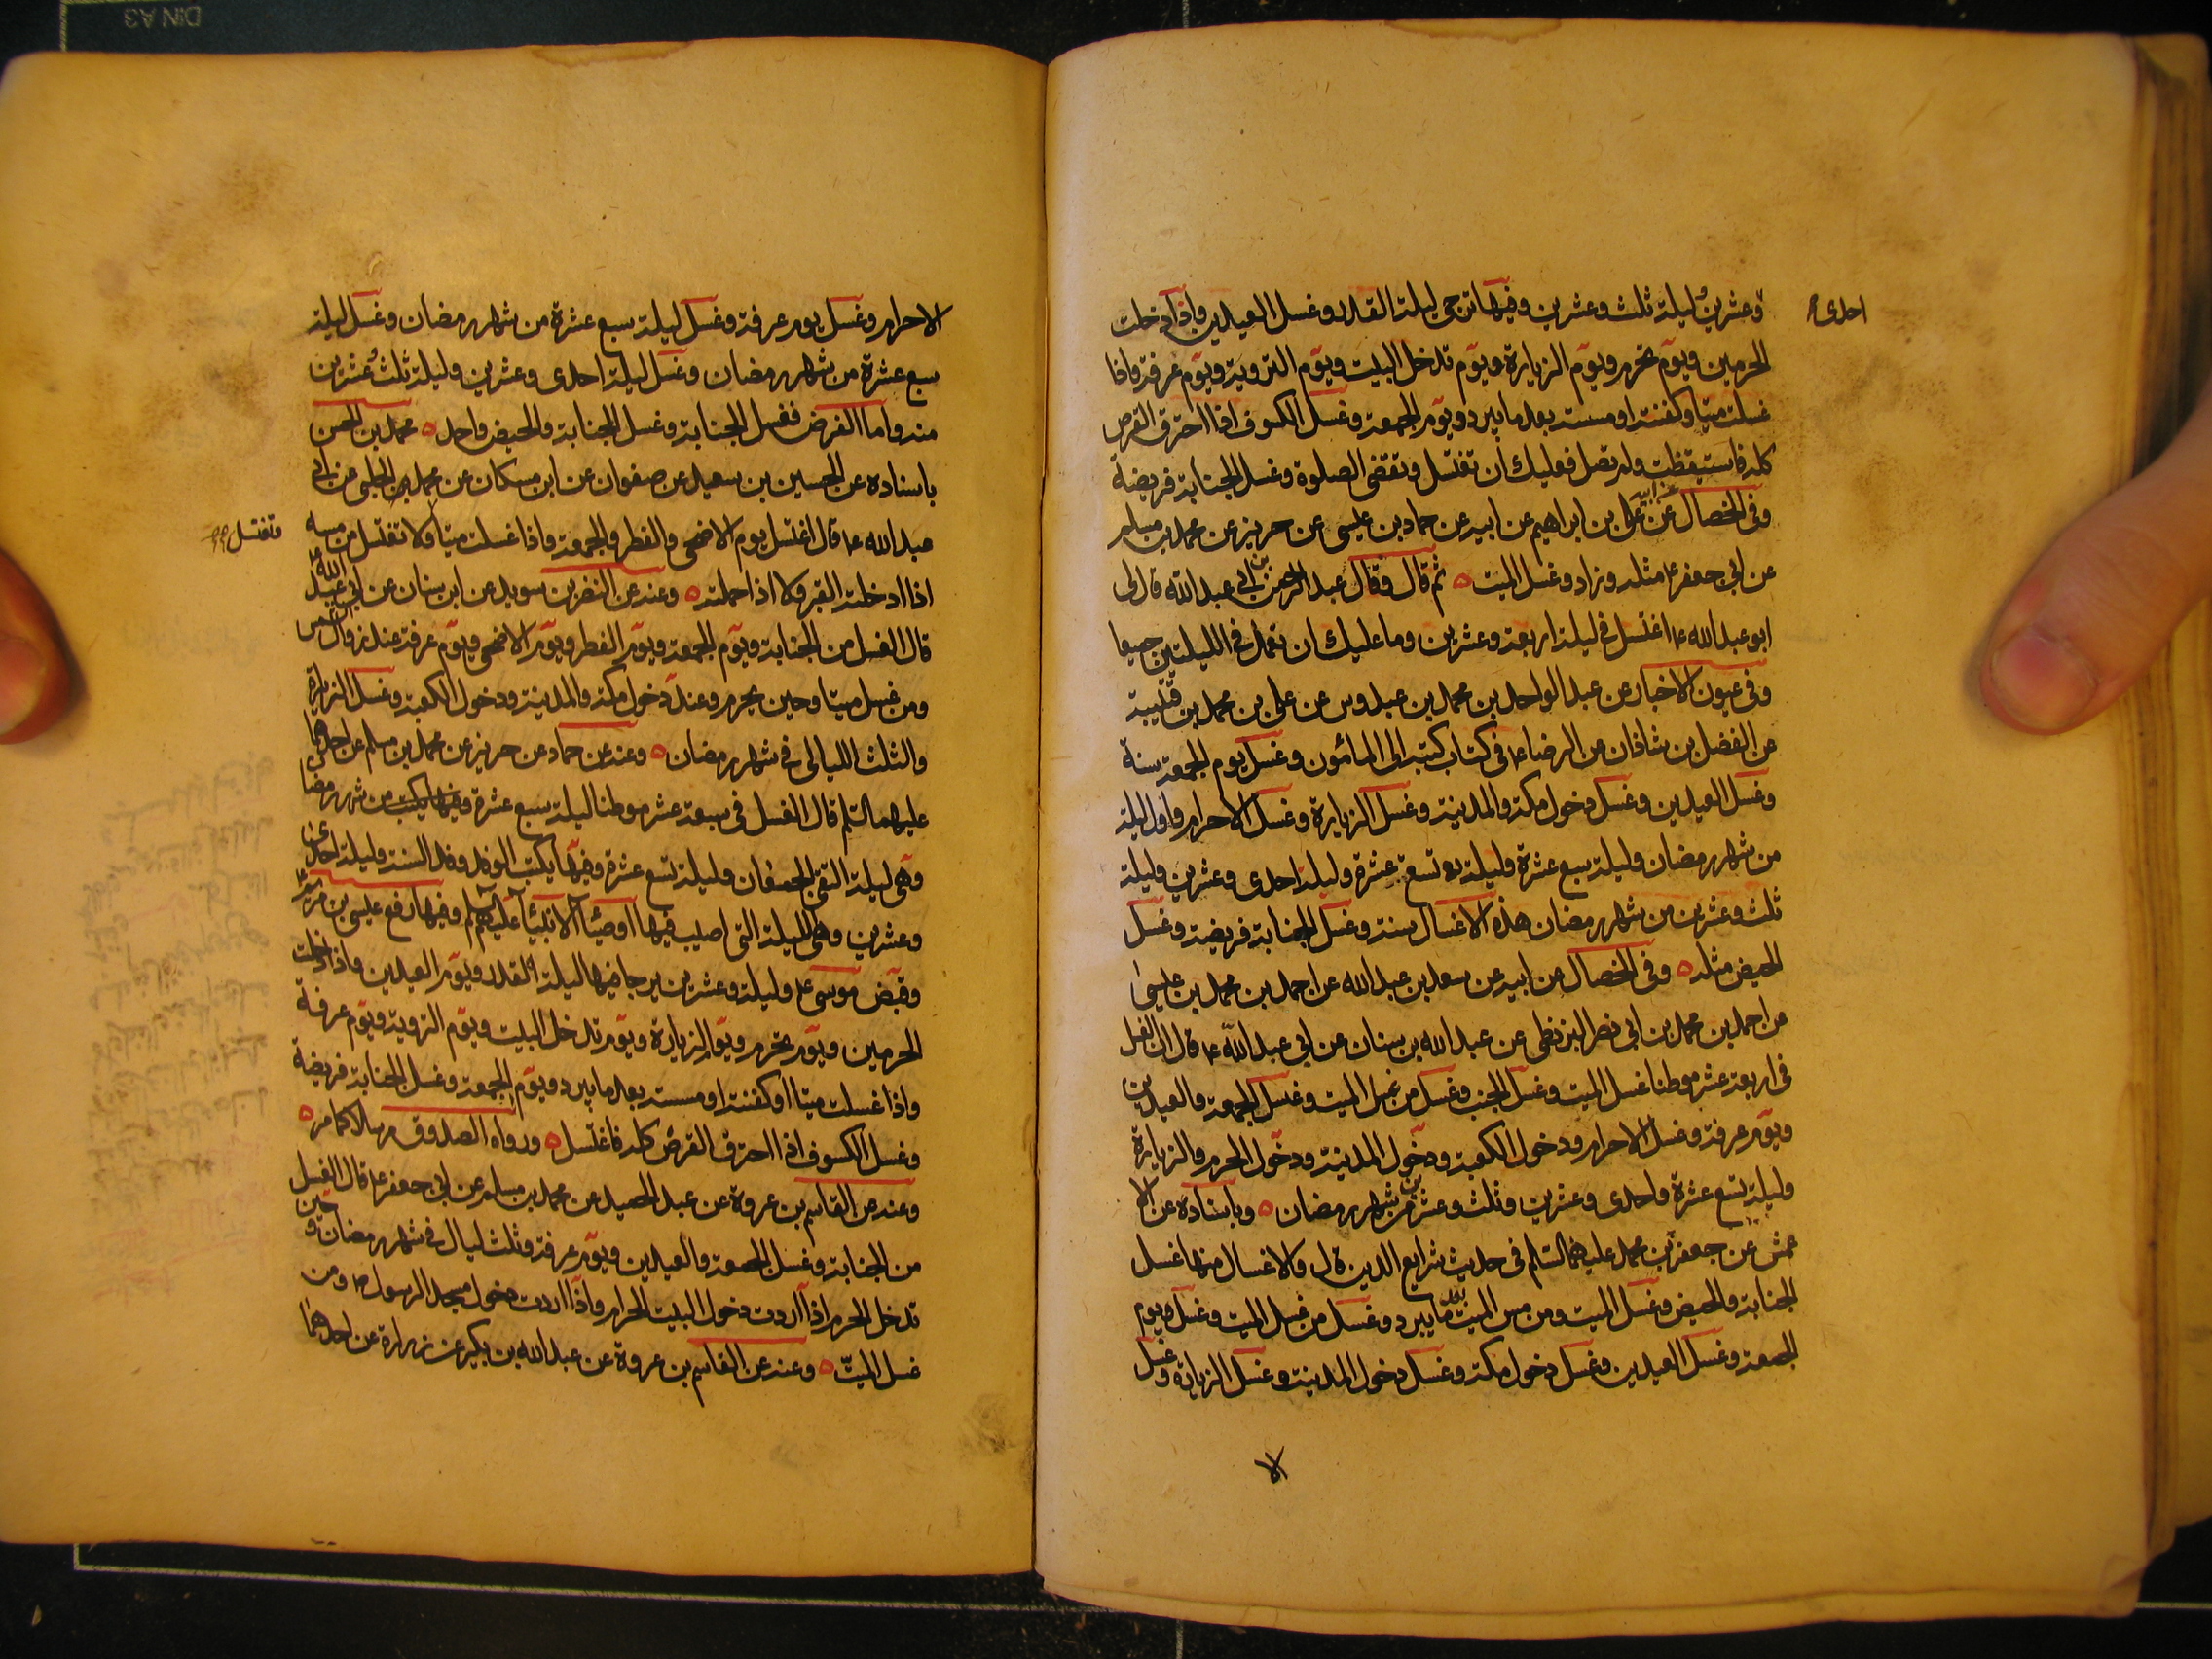 احدى
وعشرين وليلة ثلث وعشرين وفيها ترجى ليلة القدر وغسل العيدين واذا دخلت
الحرمين ويوم تحرم ويوم الزيارة ويوم تدخل البيت ويوم التروية ويوم عرفة فاذا
غسلت ميتا وكفنته او مسسته بعد ما يبرد ويوم الجمعة وغسل الكسوف اذا احترق القرص
كله فاستيقظت ولم تصل فعليك ان تغتسل وتقضى الصلوة وغسل الجنابة فريضة
وفى الخصال عن ابيه عن على بن ابراهيم عن ابيه عن حماد بن عيسى عن حريز عن محمد بن مسلم
عن ابى جعفر ع مثله وزاد وغسل الميت ثم قال وقال عبد الرحمن بن ابى عبد الله قال لى
ابو عبد الله ع اغتسل فى ليلة اربعة وعشرين وما عليك ان تعمل فى الليلتين جميعا
وفى عيون الاخبار عن عبد الواحد بن محمد بن عبدوس عن على بن محمد بن قتيبة
عن الفضل بن شاذان عن الرضا ع فى كتاب كتبه الى المأمون وغسل يوم الجمعة سنة
وغسل العيدين وغسل دخول مكة والمدينة وغسل الزيارة وغسل الاحرام واول ليلة
من شهر رمضان وليلة سبع عشرة وليلة تسع عشرة وليلة احدى وعشرين وليلة
ثلث وعشرين من شهر رمضان هذه الاغسال سنة وغسل الجنابة فريضة وغسل
الحيض مثله وفى الخصال عن ابيه عن سعد بن عبد الله عن احمد بن محمد بن عيسى
عن احمد بن محمد بن ابى نصر البزنطى عن عبد الله بن سنان عن ابى عبد الله ع قال ان الغسل
فى اربعة عشر موطنا غسل الميت وغسل الجنب وغسل من غسل الميت وغسل الجمعة والعيدين
ويوم عرفة وغسل الاحرام ودخول الكعبة ودخول المدينة ودخول الحرم والزيارة
وليلة تسع عشرة واحدى وعشرين وثلث وعشرين من شهر رمضان وباسناده عن الا
عمش عن جعفر بن محمد عليهما السلم فى حديث شرايع الدين قال والاغسال منها غسل
الجنابة والحيض وغسل الميت ومن مس الميت بعد ما يبرد وغسل من غسل الميت وغسل يوم
الجمعة وغسل العيدين وغسل دخول مكة وغسل دخول المدينة وغسل الزيارة وغسل
الا
الاحرام وغسل يوم عرفة وغسل ليلة سبع عشرة من شهر رمضان وغسل ليلة
سبع عشرة من شهر رمضان وغسل ليلة احدى وعشرين وليلة ثلث وعشرين
منه واما الفرض فغسل الجنابة وغسل الجنابة والحيض واحد محمد بن الحسن
باسناده عن الحسين بن سعيد عن صفوان عن ابن مسكان عن محمد الحلبى عن ابى
عبد الله ع قال اغتسل يوم الاضحى والفطر والجمعة واذا غسلت ميتا ولا تغتسل من مسه
وتغتسل
اذا ادخلته القبر ولا اذا حملته وعنه عن النضر بن سويد عن ابن سنان عن ابى عبد الله ع
قال الغسل من الجنابة ويوم الجمعة ويوم الفطر ويوم الاضحى ويوم عرفة عند زوال الشمس
ومن غسل ميتا وحين يحرم وعند دخول مكة والمدينة ودخول الكعبة وغسل الزيارة
والثلث الليالى فى شهر رمضان وعنه عن حماد عن حريز عن محمد بن مسلم عن احدهما
عليهما السلم قال الغسل فى سبعة عشر موطنا ليلة سبع عشرة من شهر رمضان
وهى ليلة التقى الجمعان وليلة تسع عشرة وفيها يكتب الوفد وفد السنة وليلة احدى
وعشرين وهى الليلة التى اصيب فيها اوصياء الانبياء عليهم السلم وفيها رفع عيسى بن مريم
وقبض موسى ع وليلة وعشرين يرجا فيها ليلة القدر ويوم العيدين واذا دخلت
الحرمين ويوم تحرم ويوم الزيارة ويوم تدخل البيت ويوم التروية ويوم عرفة
واذا غسلت ميتا او كفنته او مسسته بعد ما يبرد ويوم الجمعة وغسل الجنابة فريضة
وغسل الكسوف اذا احترق القرص كله فاغتسل ورواه الصدوق مرسلا كما مر
وعنه عن القاسم بن عروة عن عبد الحميد عن محمد بن مسلم عن ابى جعفر ع قال الغسل
من الجنابة وغسل الجمعة والعيدين ويوم عرفة وثلث ليال فى شهر رمضان وحين
تدخل الحرم اذا اردت دخول البيت الحرام واذا اردت دخول مسجد الرسول ص ومن
غسل الميت وعنه عن القاسم بن عروة عن عبد الله بن بكير عن زرارة عن احدهما